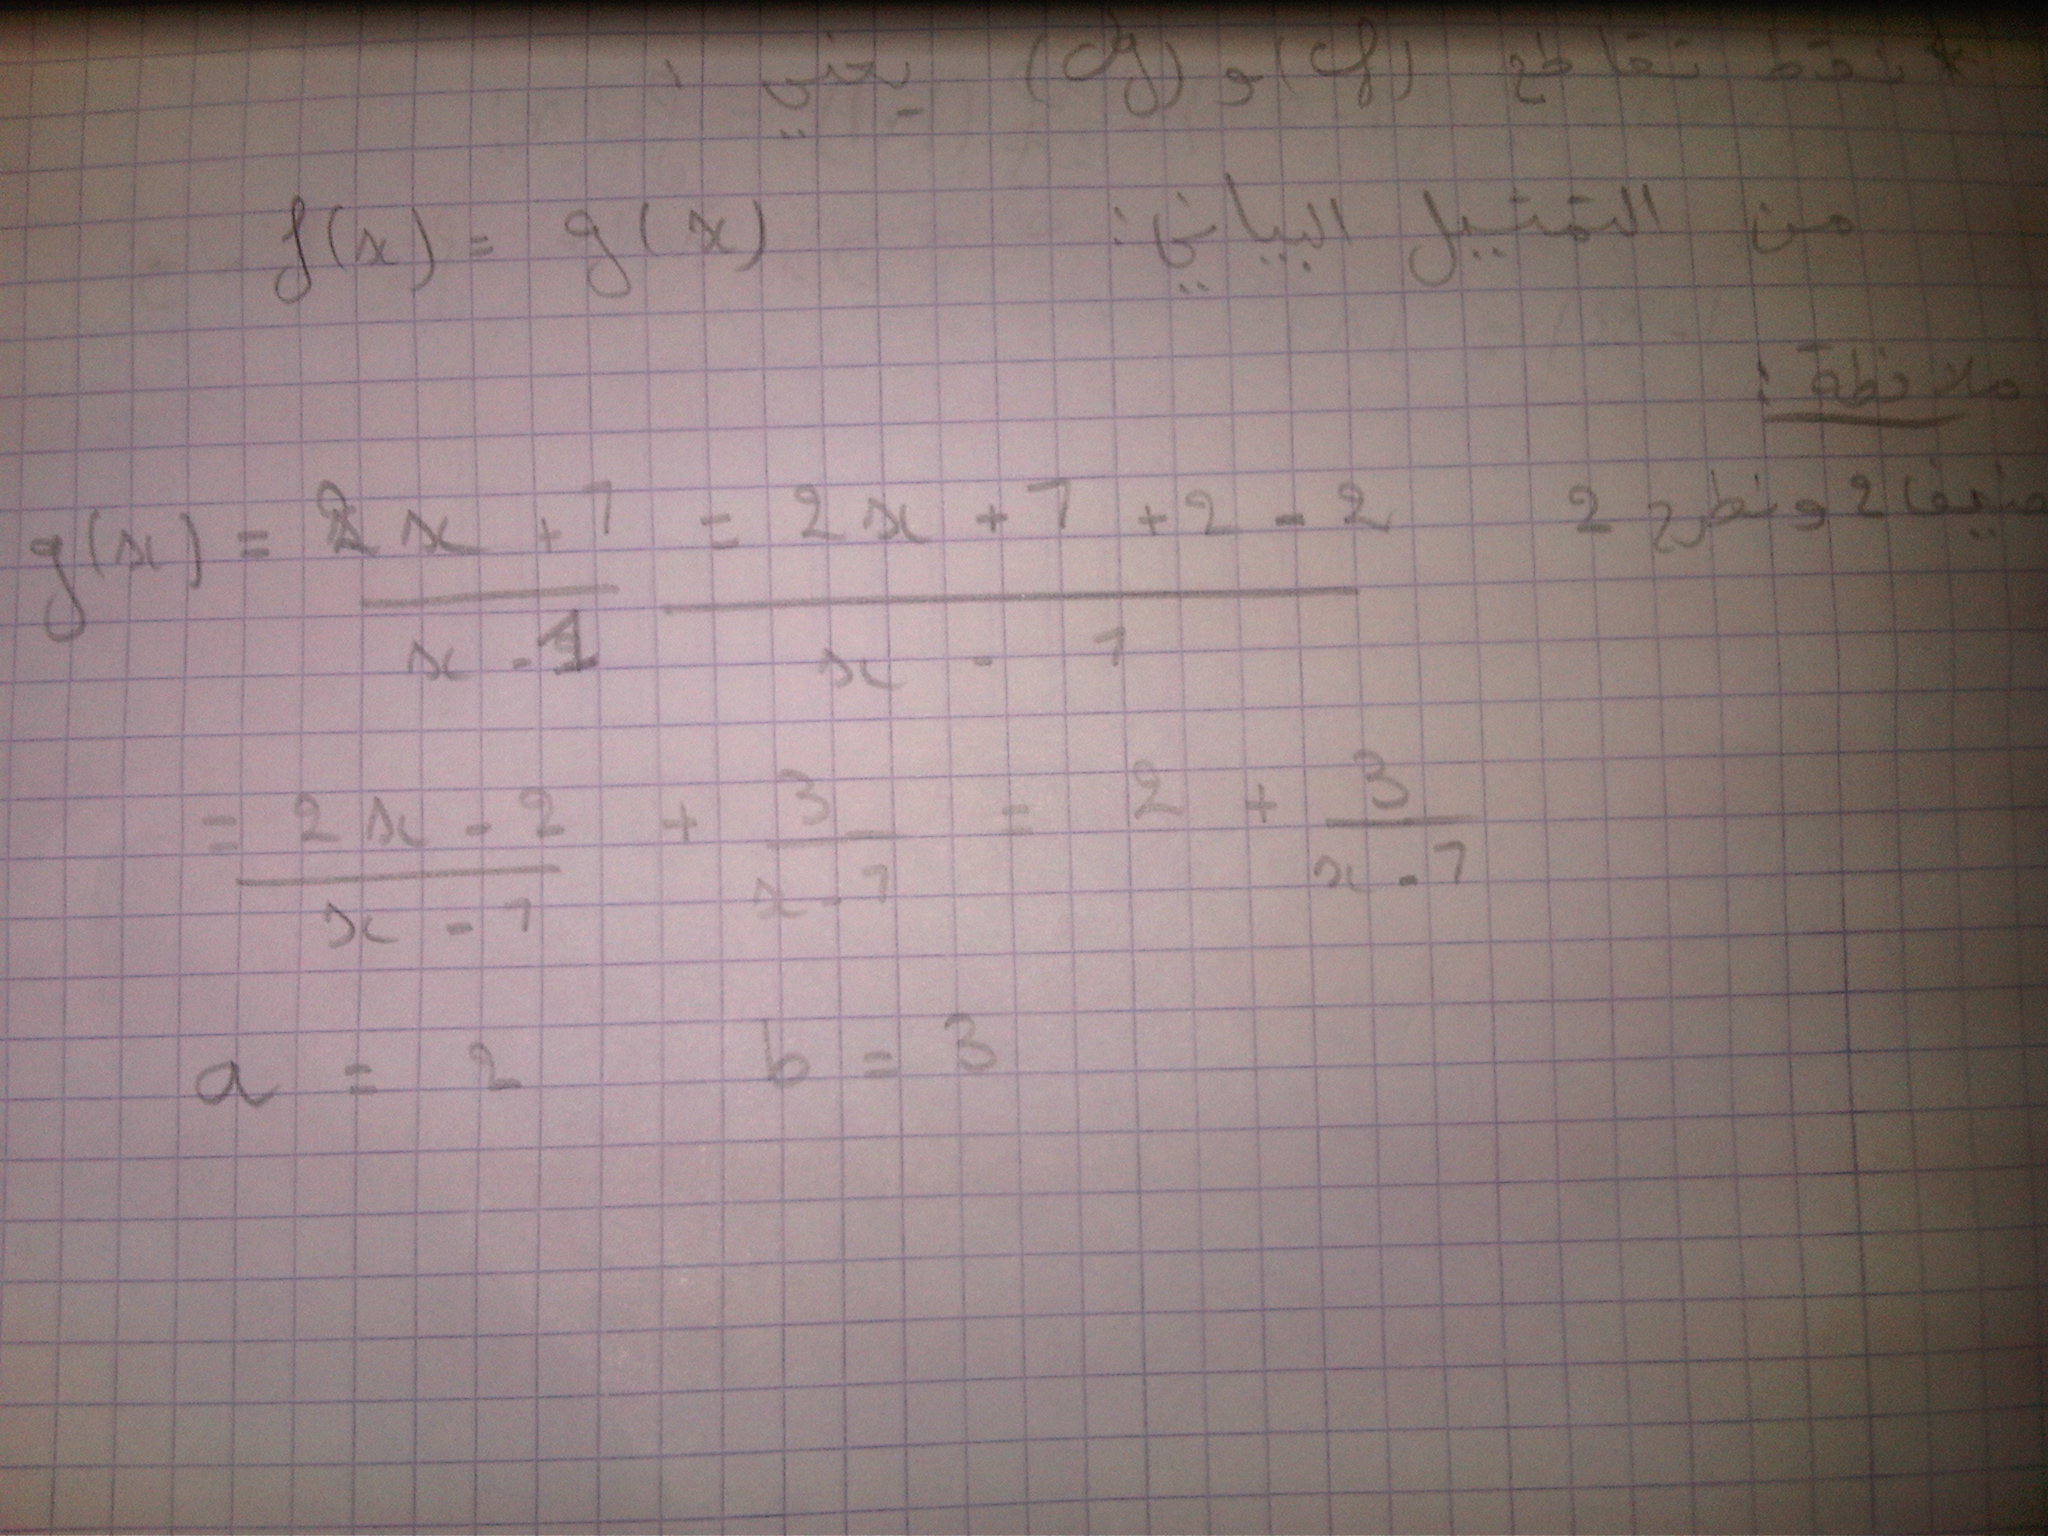 * نقط تقاطع (Cf) و (Cg) يعني :
من التمثيل البياني: f(x) = g(x)
ملاحظة :
نضيف 2 و نطرح 2 g(x) = 2x + 1 / x - 1 = 2x + 1 + 2 - 2 / x - 1
= 2x - 2 / x - 1 + 3 / x - 1 = 2 + 3 / x - 1
a = 2 b = 3